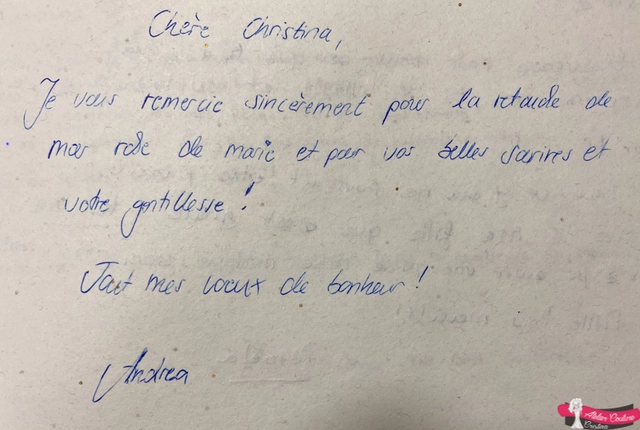 Chère Christina,
Je vous remercie sincèrement pour la retouche de
mas robe de marié et pour vos belles sourires et
votre gentillesse !
Tout mes vœux de bonheur !
Andrea
Atelier Couture